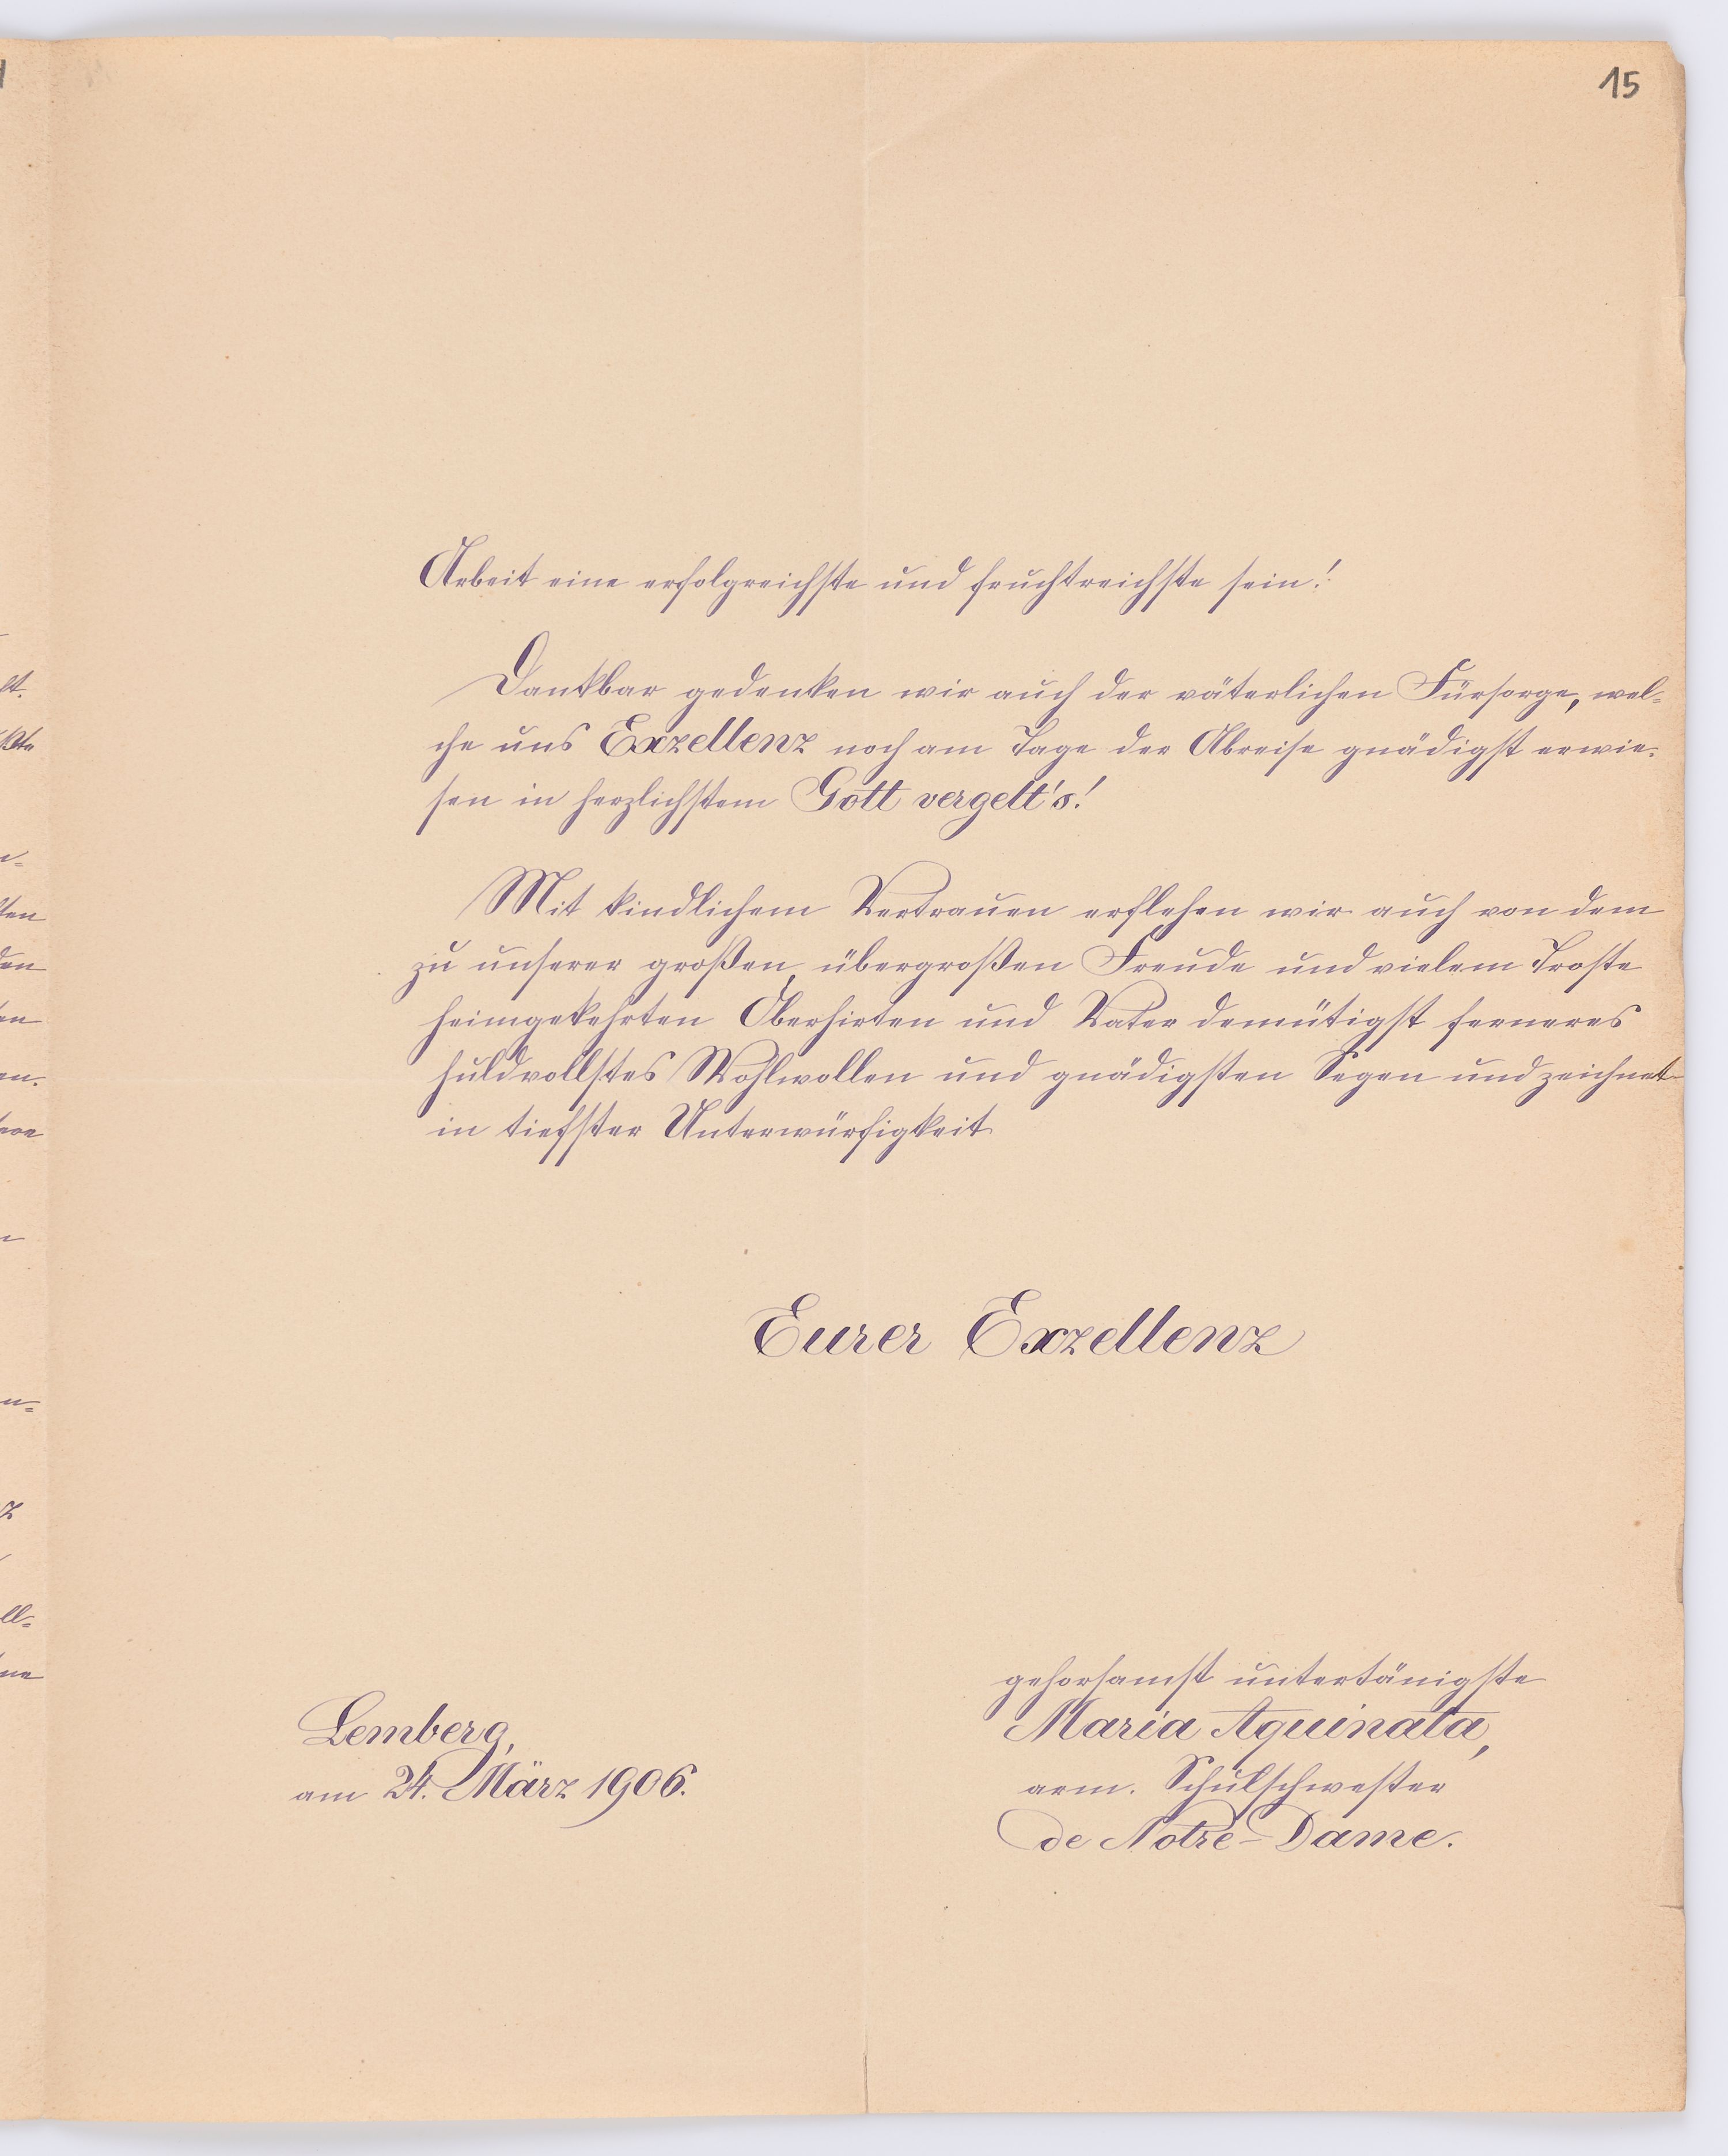 15
Arbeit eine erfolgreichste und fruchtreichste sein!
Dankbar gedenken wir auch der väterlichen Fürsorge, wel-
che uns Exzellenz noch am Tage der Abreise gnädigst erwie-
sen in herzlichstem Gott vergelt's!
Mit kindlichem Vertrauen erflehen wir auch von dem
zu unserer großen, übergroßen Freude und vielem Troste
heimgekehrten Oberhirten und Vater demütigst ferneres
huldvollstes Wohlwollen und gnädigsten Segen und zeichnet
in tiefster Unterwürfigkeit
Eurer Exzellenz
gehorsamst untertänigste
Maria Aquinata,
arm. Schulschwester
de Notre-Dame.
Lemberg,
am 24. März 1906.